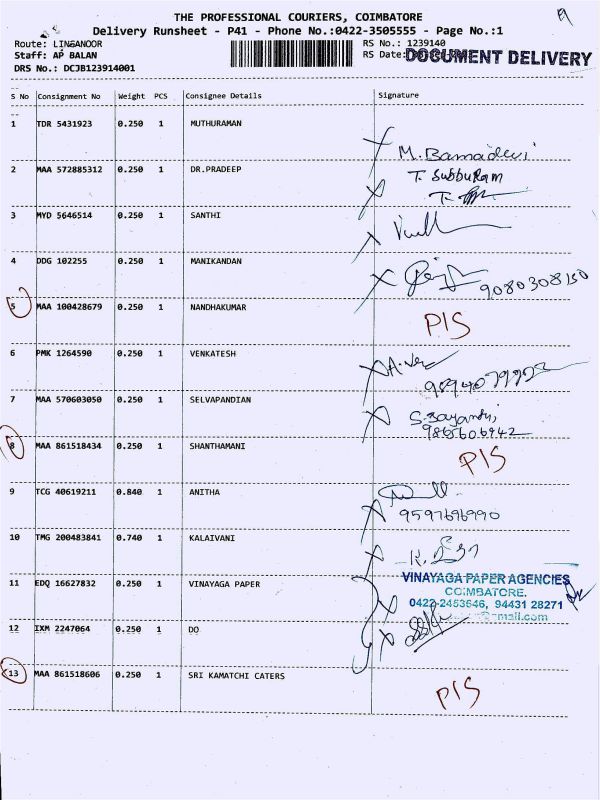 THE PROFESSIONAL COURIERS, COIMBATORE
Delivery Runsheet - P41 - Phone No.:0422-3505555 - Page No.:1
Route: LINGANOOR RS No.: 1239140
Staff: AP BALAN RS Date: DOCUMENT DELIVERY
DRS No.: DCJB123914001
S No Consignment No Weight PCS Consignee Details Signature
1 TDR 5431923 0.250 1 MUTHURAMAN
M. Bamadevi
2 MAA 572885312 0.250 1 DR.PRADEEP T. Subburam
3 MYD 5646514 0.250 1 SANTHI
4 DDG 102255 0.250 1 MANIKANDAN
9080308150
5 MAA 100428679 0.250 1 NANDHAKUMAR
PIS
6 PMK 1264590 0.250 1 VENKATESH
7 MAA 570603050 0.250 1 SELVAPANDIAN
9865606942
8 MAA 861518434 0.250 1 SHANTHAMANI
PIS
9 TCG 40619211 0.840 1 ANITHA
9597696990
10 TMG 200483841 0.740 1 KALAIVANI
VINAYAGA PAPER AGENCIES
11 EDQ 16627832 0.250 1 VINAYAGA PAPER
COIMBATORE.
0422-2453646, 94431 28271
12 IXM 2247064 0.250 1 DO
13 MAA 861518606 0.250 1 SRI KAMATCHI CATERS
PIS